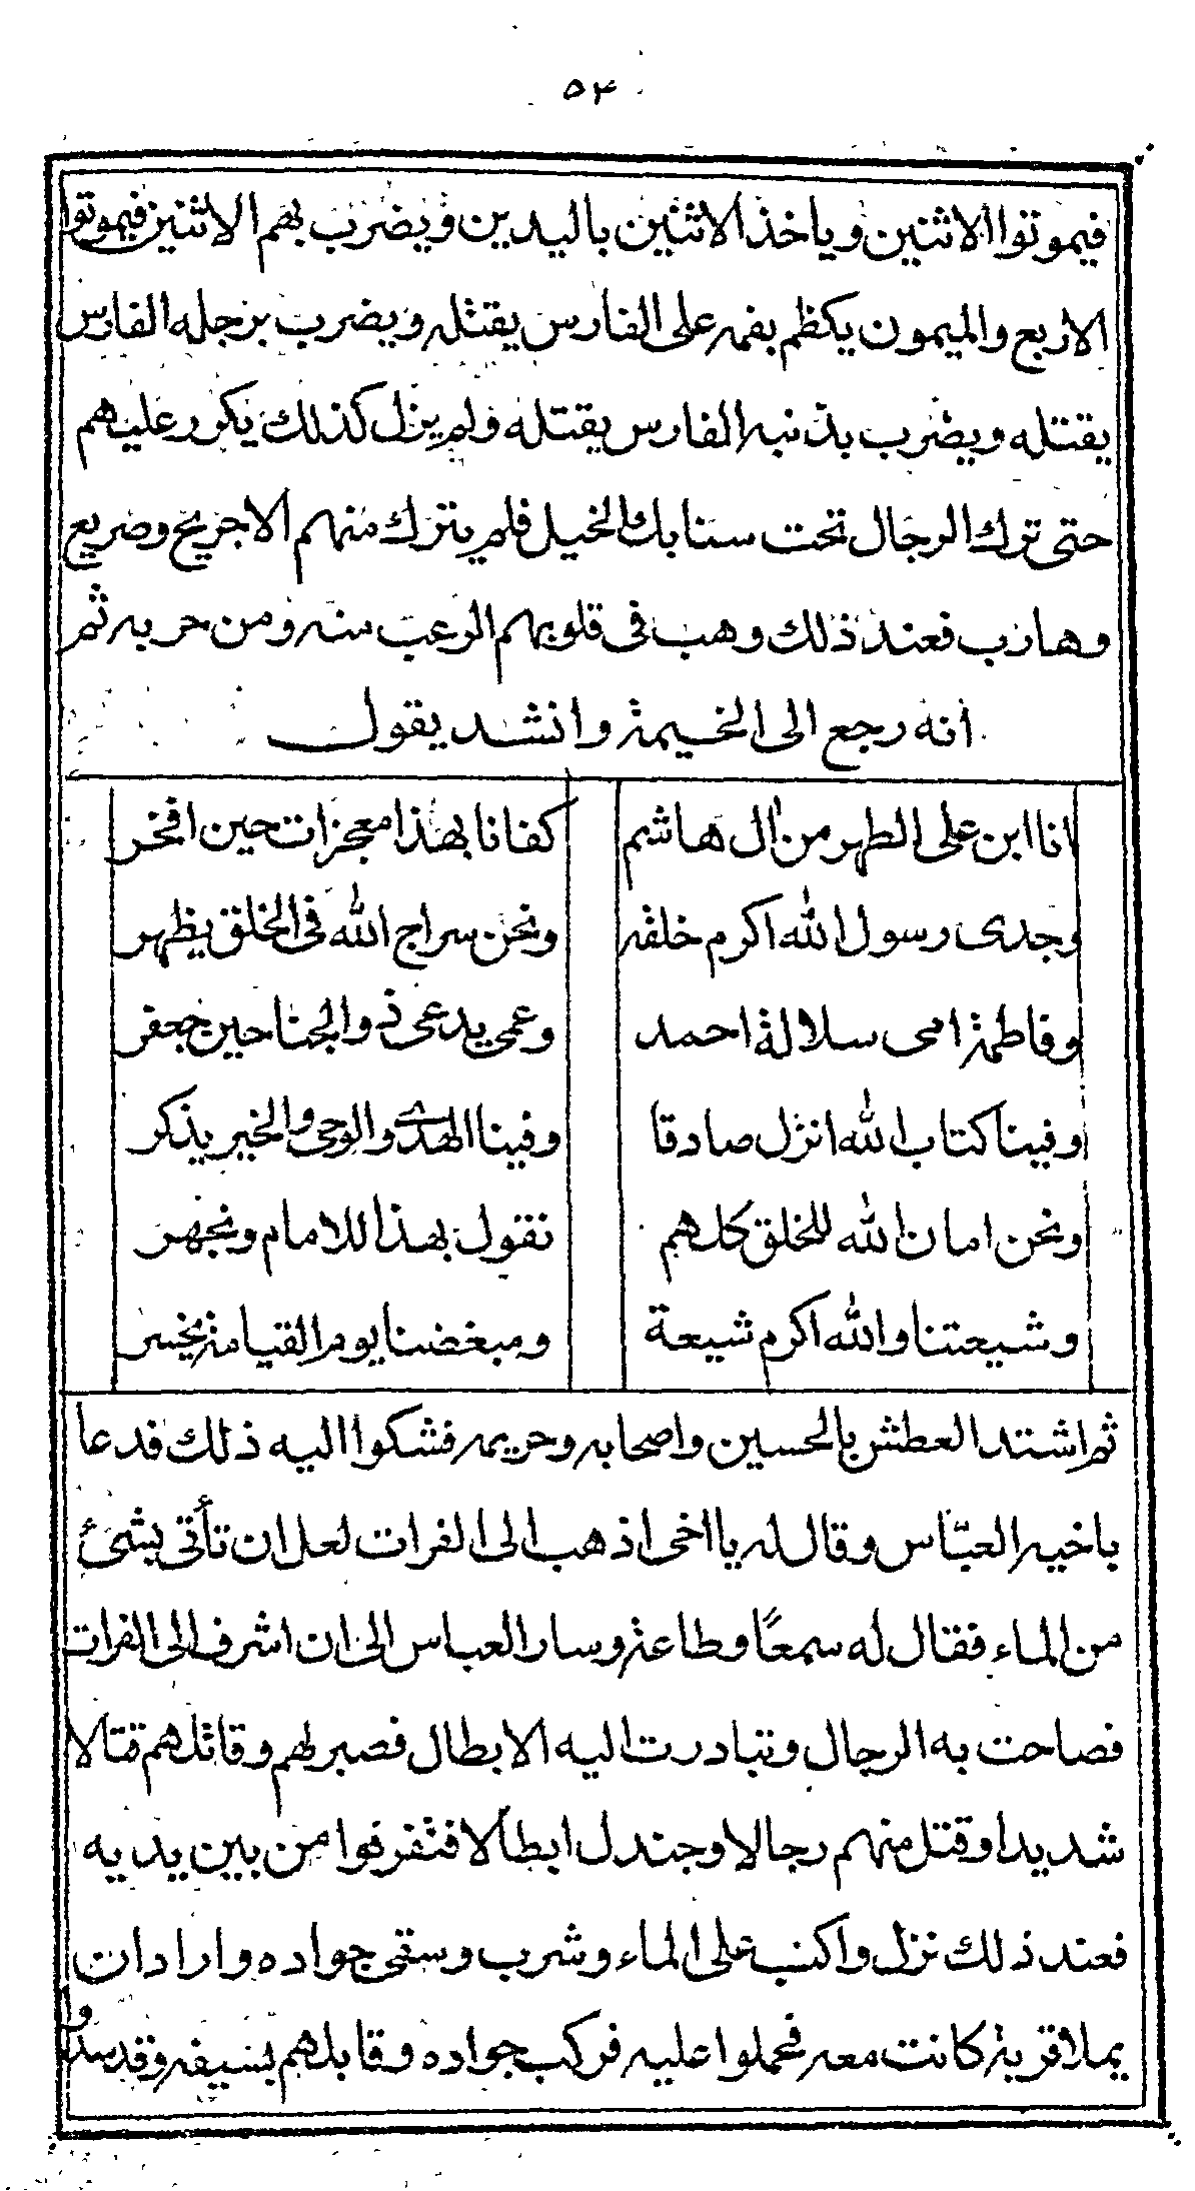 ٥٤
فيموتوا الاثنين وياخذ الاثنين باليدين ويضرب بهم الاثنين فيموتوا
الاربع والميمون يكظم بفمه على الفارس يقتله ويضرب برجله الفارس
يقتله ويضرب بذنبه الفارس يقتله ولم يزل كذلك يكرر عليهم
حتى ترك الرجال تحت سنابك الخيل فلم يترك منهم الا جريح وصريع
وهارب فعند ذلك وهب فى قلوبهم الرعب منه ومن حربه ثم
انه رجع الى الخيمة وانشد يقول
انا ابن على الطهر من آل هاشم كفانا بهذا معجزات حين افخر
وجدى رسول الله اكرم خلقه ونحن سراج الله فى الخلق يظهر
وفاطمة امى سلالة احمد وعمى يدعى ذو الجناحين جعفر
وفينا كتاب الله انزل صادقا وفينا الهدى والوحى والخير يذكر
ونحن امان الله للخلق كلهم نقول بهذا للامام ونجهر
وشيعتنا والله اكرم شيعة ومبغضنا يوم القيامة يخسر
ثم اشتد العطش بالحسين واصحابه وحريمه فشكوا اليه ذلك فدعا
باخيه العبّاس وقال له يا اخى اذهب الى الفرات لعل ان تأتى بشئ
من الماء فقال له سمعًا وطاعة وسار العباس الى ان اشرف الى الفرات
فصاحت به الرجال وتبادرت اليه الابطال فصبر لهم وقاتلهم قتالا
شديدا وقتل منهم رجالا وجندل ابطالا فتفرقوا من بين يديه
فعند ذلك نزل واكب على الماء وشرب وسقى جواده واراد ان
يملا قربة كانت معه فحملوا عليه فركب جواده وقابلهم بسيفه وقد سدوا